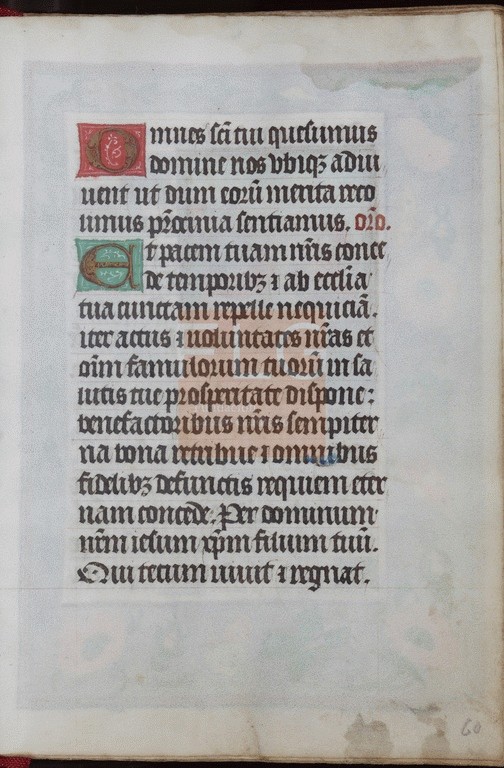 Omnes sc̃i tui quesumus
domine nos vbiqꝫ adiu
uent ut dum eorũ merita reco
limus patrocinia sentiamus. orõ.
Et pacem tuam nr̃is conce
de temporibꝫ ⁊ ab ecclia
tua cunctam repelle nequiciã.
iter actus ⁊ uoluntates nr̃as et
oĩm famulorum tuorũ in sa
lutis tue prosperitate dispone:
benefactoribus nr̃is sempiter
na bona retribue ⁊ omnibus
fidelibꝫ defunctis requiem eter
nam concede. Per dominum
nr̃m iesum xp̃m filium tuũ.
Qui tecum uiuit ⁊ regnat.
60